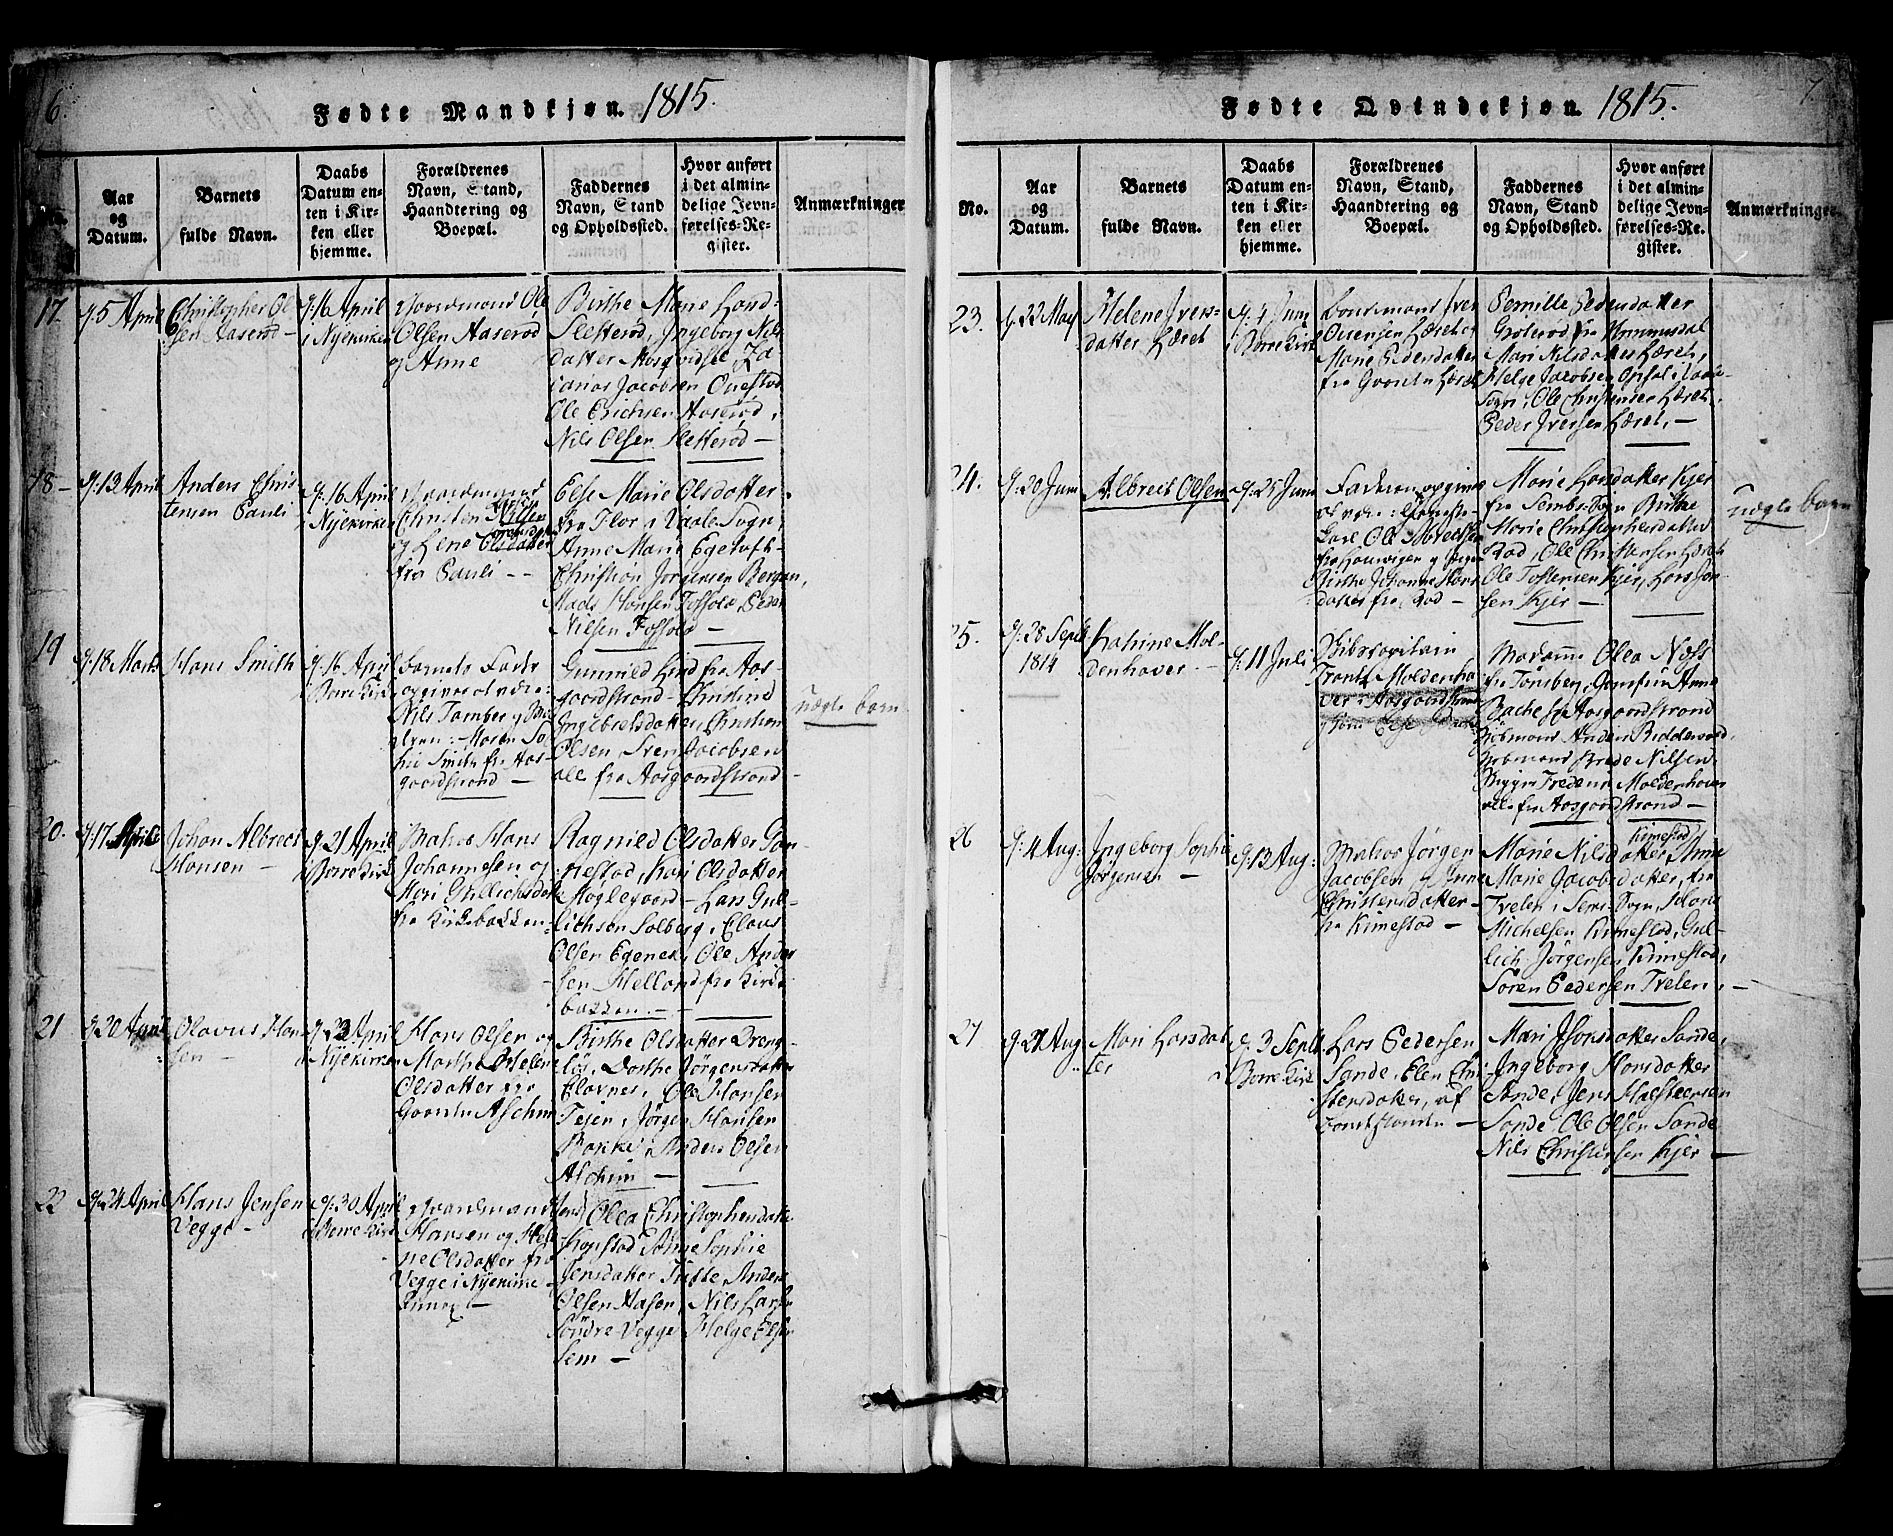 6.
Fødte Mandkjøn. 1815.
Aar
og
Datum.
Barnets
fulde Navn.
Daabs
Datum en-
ten i Kir-
ken eller
hjemme.
Forældrenes
Navn, Stand,
Haandtering og
Boepæl.
Faddernes
Navn, Stand
og Opholdssted.
Hvor anført
i det almin-
delige Jevn-
førelses-Re-
gister.
Anmærkninger
17
5 April
Christopher Ol
sen Aaserød -
16 April
i Nyekirken
Gaardmand Ole
Olsen Aaserød
og Anne
Birthe Marie
Sletterød, Ingeborg Nils
datter
Jacobsen
Ole Erichsen Aaserød,
Nils Olsen Sletterød -
18 -
13 April
Anders Chris
tensen Pauli
16 April
i Nyekirke
Christen Nilsen
og Lene Olsdatter
fra Pauli - -
Else Marie Olsdatter
fra Flor i Vaale Sogn,
Anne Marie
Christian Jørgensen Bergan,
Mads Hansen Fossola, Peder
Nilsen Fossola -
19
18 Marts
Hans Smith
16 April
i Borre Kirk
Barnets Fader
opgives at være:
Nils Tomber
Maren So
phie Smith fra Aas-
gaardstrand -
Gunnild Lind fra Aas-
gaardstrand - Christine
Ingebretsdatter, Christian
Olsen, Sven Jacobsen
alle fra Aasgaardstrand -
uægte barn
20.
17 April
Johan Albrect
Hansen -
21 April
i Borre Kirk
Hans
Johannesen og
Mari Gullichsdat
fra Kirkebakken -
Ragnild Olsdatter
Kari Olsdatter
Høglegaard - Lars Gul-
lichsen Solberg, Claus
Olsen Egenes, Ole Ander
sen Helland fra Kirke
bakken. -
21
20 April
Olavus Han
sen -
23 April
i Nyekirken
Hans Olsen og
Marthe Helene
Olsdatter fra
Gaarden Aschim
Birthe Olsdatter
Dorthe Jørgensdatter
Ole Hansen
Teien, Jørgen Hansen
Bakke, Anders Olsen
Aschim -
22
24 April
Hans Jensen
Vegge -
30 April
i Borre Kirk
Gaardmand Jens
Hansen og Hele
ne Olsdatter fra
Vegge i Nyekirke
Annex -
Olea Christophersdatt
Kopstad, Anne Sophie
Jensdatter Anders
Olsen Nils Larsen
Søndre Vegge, Helge Olsen
Sem -
7.
Fødte Qvindekjøn 1815.
No.
Aar
og
Datum.
Barnets
fulde Navn.
Daabs
Datum en-
ten i Kir-
ken eller
hjemme.
Forældrenes
Navn, Stand,
Haandtering og
Boepæl.
Faddernes
Navn, Stand
og Opholdssted.
Hvor anført
i det almin-
delige Jevn-
førelses-Re-
gister.
Anmærkninger.
23.
22 May
Helene Ivers-
datter Læret
4 Juni
i Borre Kirk
Gaardmand Iver
Læret og
Marie Pedersdatter
fra Gaarden Læret
Pernille Pedersdatter
Grøterød fra Rommusdal
Mari Nilsdatter Læret,
Helge Jacobsen Opsal i Vaale
Sogn, Ole Christensen Læret,
Peder Iversen Læret, -
24.
20 Juni
Albrect Olsen
25 Juni
Faderen opgives
at være:
Ole
Birthe Johanne Hans
datter fra Rod -
Marie Larsdatter Kjer
fra Sembs Sogn, Birthe
Marie Christophersdatter
Rod, Ole Christiansen Læret
Ole Tostensen Kjer, Lars Jan
sen Kjer -
uægte barn
25.
28 Septb
1814
Cathrine Mol-
denhaver -
11 Juli
Skibscapitain
Frantz Moldenha
ver i Aasgaardstrand
Madame Olea Næss
fra Tønsberg, Anne
Bache fra Aasgaardstrand
Kiøbmand Anders Bidderwad
Kiøbmand Brede Nilsen,
Moldenhaver
alle fra Aasgaardstrand -
26
4 Aug:
Ingeborg Sophie
Jørgensen -
13 Aug:
Jørgen
Jacobsen, og Anne
Christensdatter
fra Kimestad -
Kimestad
Marie Nilsdatter, Anne
Marie Jacobsdatter, fra
Tvelen i Sems Sogn, Hans
Michelsen Kimestad, Gul-
lich Jørgensen Kimestad,
Søren Pedersen Tvelen. -
27
27 Aug
Mari Larsdat
ter
3 Septb
i Borre Kirk
Lars Pedersen
Sande, Elen Chri
stensdatter, af
Mari Isaksdatter Sande,
Ingeborg Hansdatter
Sande, Jens
Sande, Ole Olsen Sande
Nils Christensen Kjer -